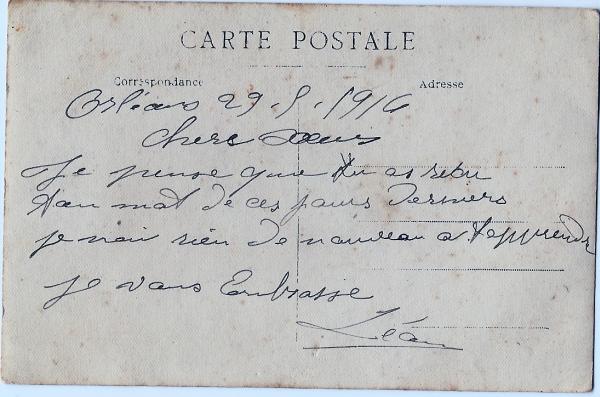 CARTE POSTALE
Correspondance
Adresse
Orléans 29. 5. 1916
Chere Soeur
Je pense que tu as resu
mot de ces jours Derniers
je nai rien de nouveau a t'apprendre
Je vous Embrasse
Léon